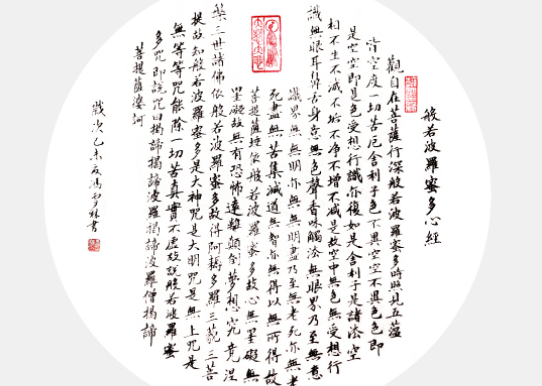 般若波羅蜜多心經
觀自在菩薩行深般若波羅蜜多時照見五蘊
皆空度一切苦厄舍利子色不異空空不異色色即
是空空即是色受想行識亦復如是舍利子是諸法空
相不生不滅不垢不淨不增不減是故空中無色無受想行
識無眼耳鼻舌身意無色聲香味觸法無眼界乃至無意
識界無無明亦無無明盡乃至無老死亦無老
死盡無苦集滅道無智亦無得以無所得故
菩提薩埵依般若波羅蜜多故心無罣礙無
罣礙故無有恐怖遠離顛倒夢想究竟涅
槃三世諸佛依般若波羅蜜多故得阿耨多羅三藐三菩
提故知般若波羅蜜多是大神咒是大明咒是無上咒是
無等等咒能除一切苦真實不虛故說般若波羅蜜
多咒即說咒曰揭諦揭諦波羅揭諦波羅僧揭諦
菩提薩婆訶
歲次乙未夏馮林書